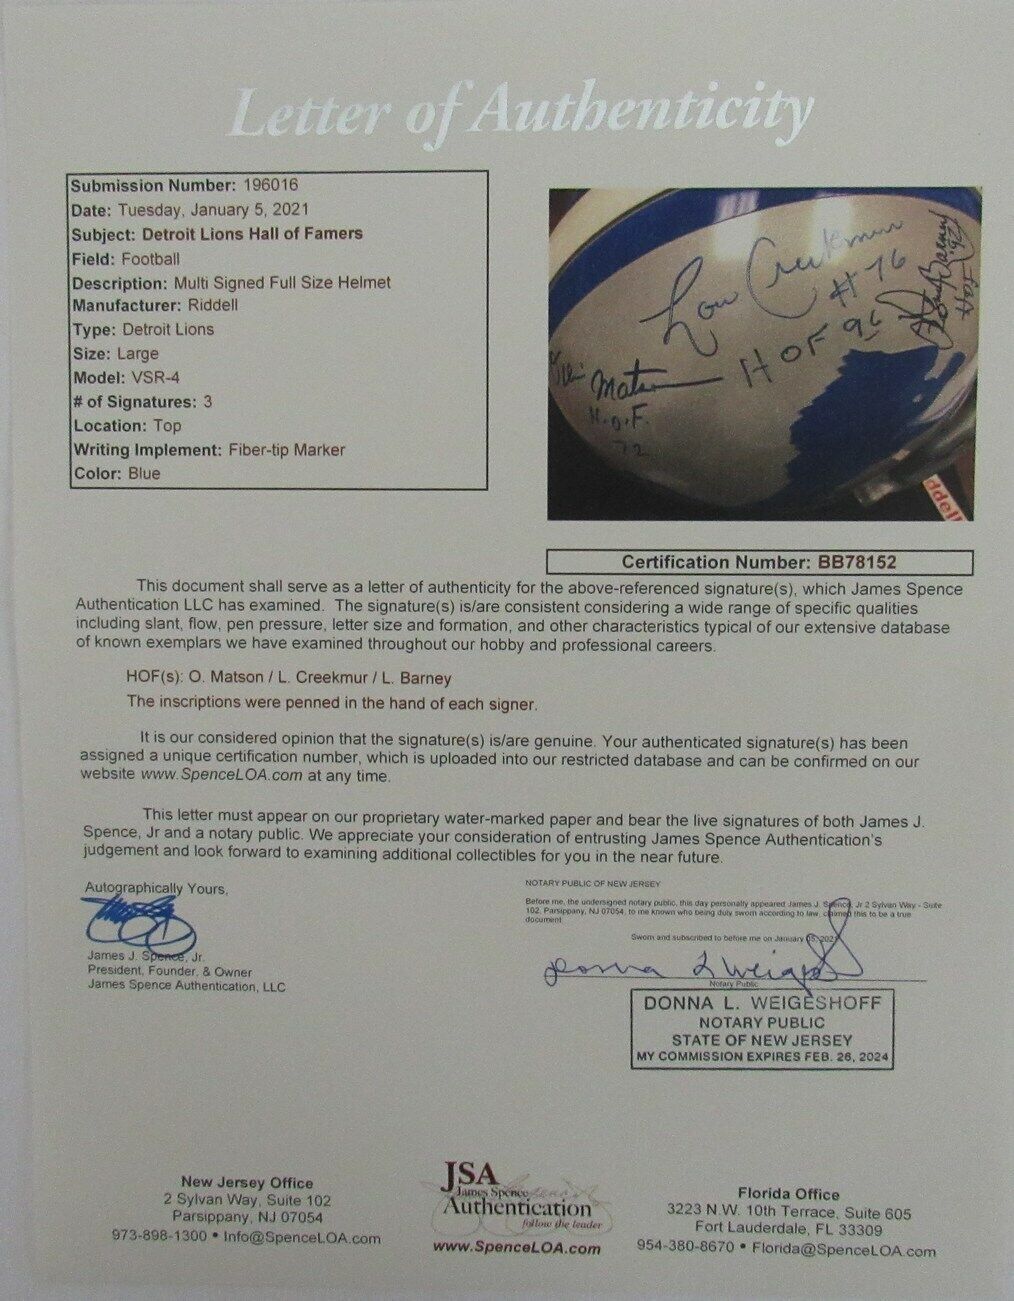 Letter of Authenticity
Submission Number: 196016
Date: Tuesday, January 5, 2021
Subject: Detroit Lions Hall of Famers
Field: Football
Description: Multi Signed Full Size Helmet
Manufacturer: Riddell
Type: Detroit Lions
Size: Large
Model: VSR-4
# of Signatures: 3
Location: Top
Writing Implement: Fiber-tip Marker
Color: Blue
Lou Creekmur
#76
HOF 96
Matson
H.O.F.
72
Barney
HOF 92
ddell
Certification Number: BB78152
This document shall serve as a letter of authenticity for the above-referenced signature(s), which James Spence
Authentication LLC has examined. The signature(s) is/are consistent considering a wide range of specific qualities
including slant, flow, pen pressure, letter size and formation, and other characteristics typical of our extensive database
of known exemplars we have examined throughout our hobby and professional careers.
HOF(s): O. Matson / L. Creekmur / L. Barney
The inscriptions were penned in the hand of each signer.
It is our considered opinion that the signature(s) is/are genuine. Your authenticated signature(s) has been
assigned a unique certification number, which is uploaded into our restricted database and can be confirmed on our
website www.SpenceLOA.com at any time.
This letter must appear on our proprietary water-marked paper and bear the live signatures of both James J.
Spence, Jr and a notary public. We appreciate your consideration of entrusting James Spence Authentication's
judgement and look forward to examining additional collectibles for you in the near future.
Autographically Yours,
James J. Spence, Jr.
President, Founder, & Owner
James Spence Authentication, LLC
NOTARY PUBLIC OF NEW JERSEY
Before me, the undersigned notary public, this day personally appeared James J. Spence, Jr 2 Sylvan Way - Suite
102, Parsippany, NJ 07054, to me known who being duly sworn according to law, claimed this to be a true
document.
Sworn and subscribed to before me on January 05, 2021
Donna L Weigeshoff
Notary Public
DONNA L. WEIGESHOFF
NOTARY PUBLIC
STATE OF NEW JERSEY
MY COMMISSION EXPIRES FEB. 26, 2024
New Jersey Office
2 Sylvan Way, Suite 102
Parsippany, NJ 07054
973-898-1300 • Info@SpenceLOA.com
JSA
James Spence
Authentication
follow the leader
www.SpenceLOA.com
Florida Office
3223 N.W. 10th Terrace, Suite 605
Fort Lauderdale, FL 33309
954-380-8670 • Florida@SpenceLOA.com